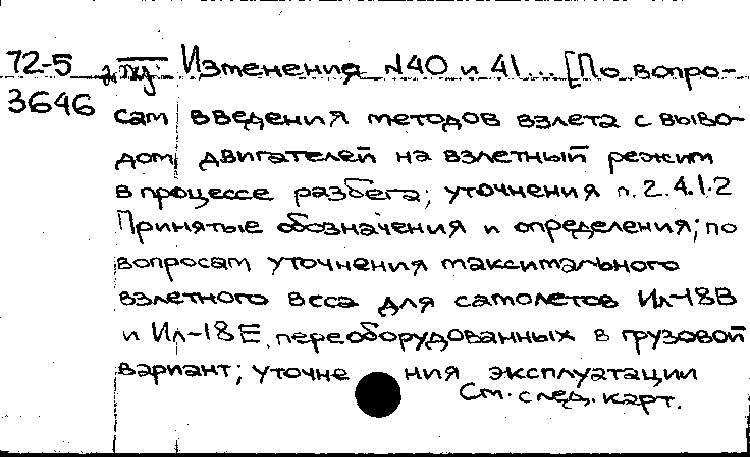 72-5 Изменения №40 и 41... [По вопро-
3646 сам введения методов взлета с выво-
дом двигателей на взлетный режим
в процессе разбега; уточнения п.2.4.1.2
Принятые обозначения и определения; по
вопросам уточнения максимального
взлетного веса для самолетов Ил-18В
и Ил-18Е, переоборудованных в грузовой
вариант; уточнения эксплуатации
См. след. карт.